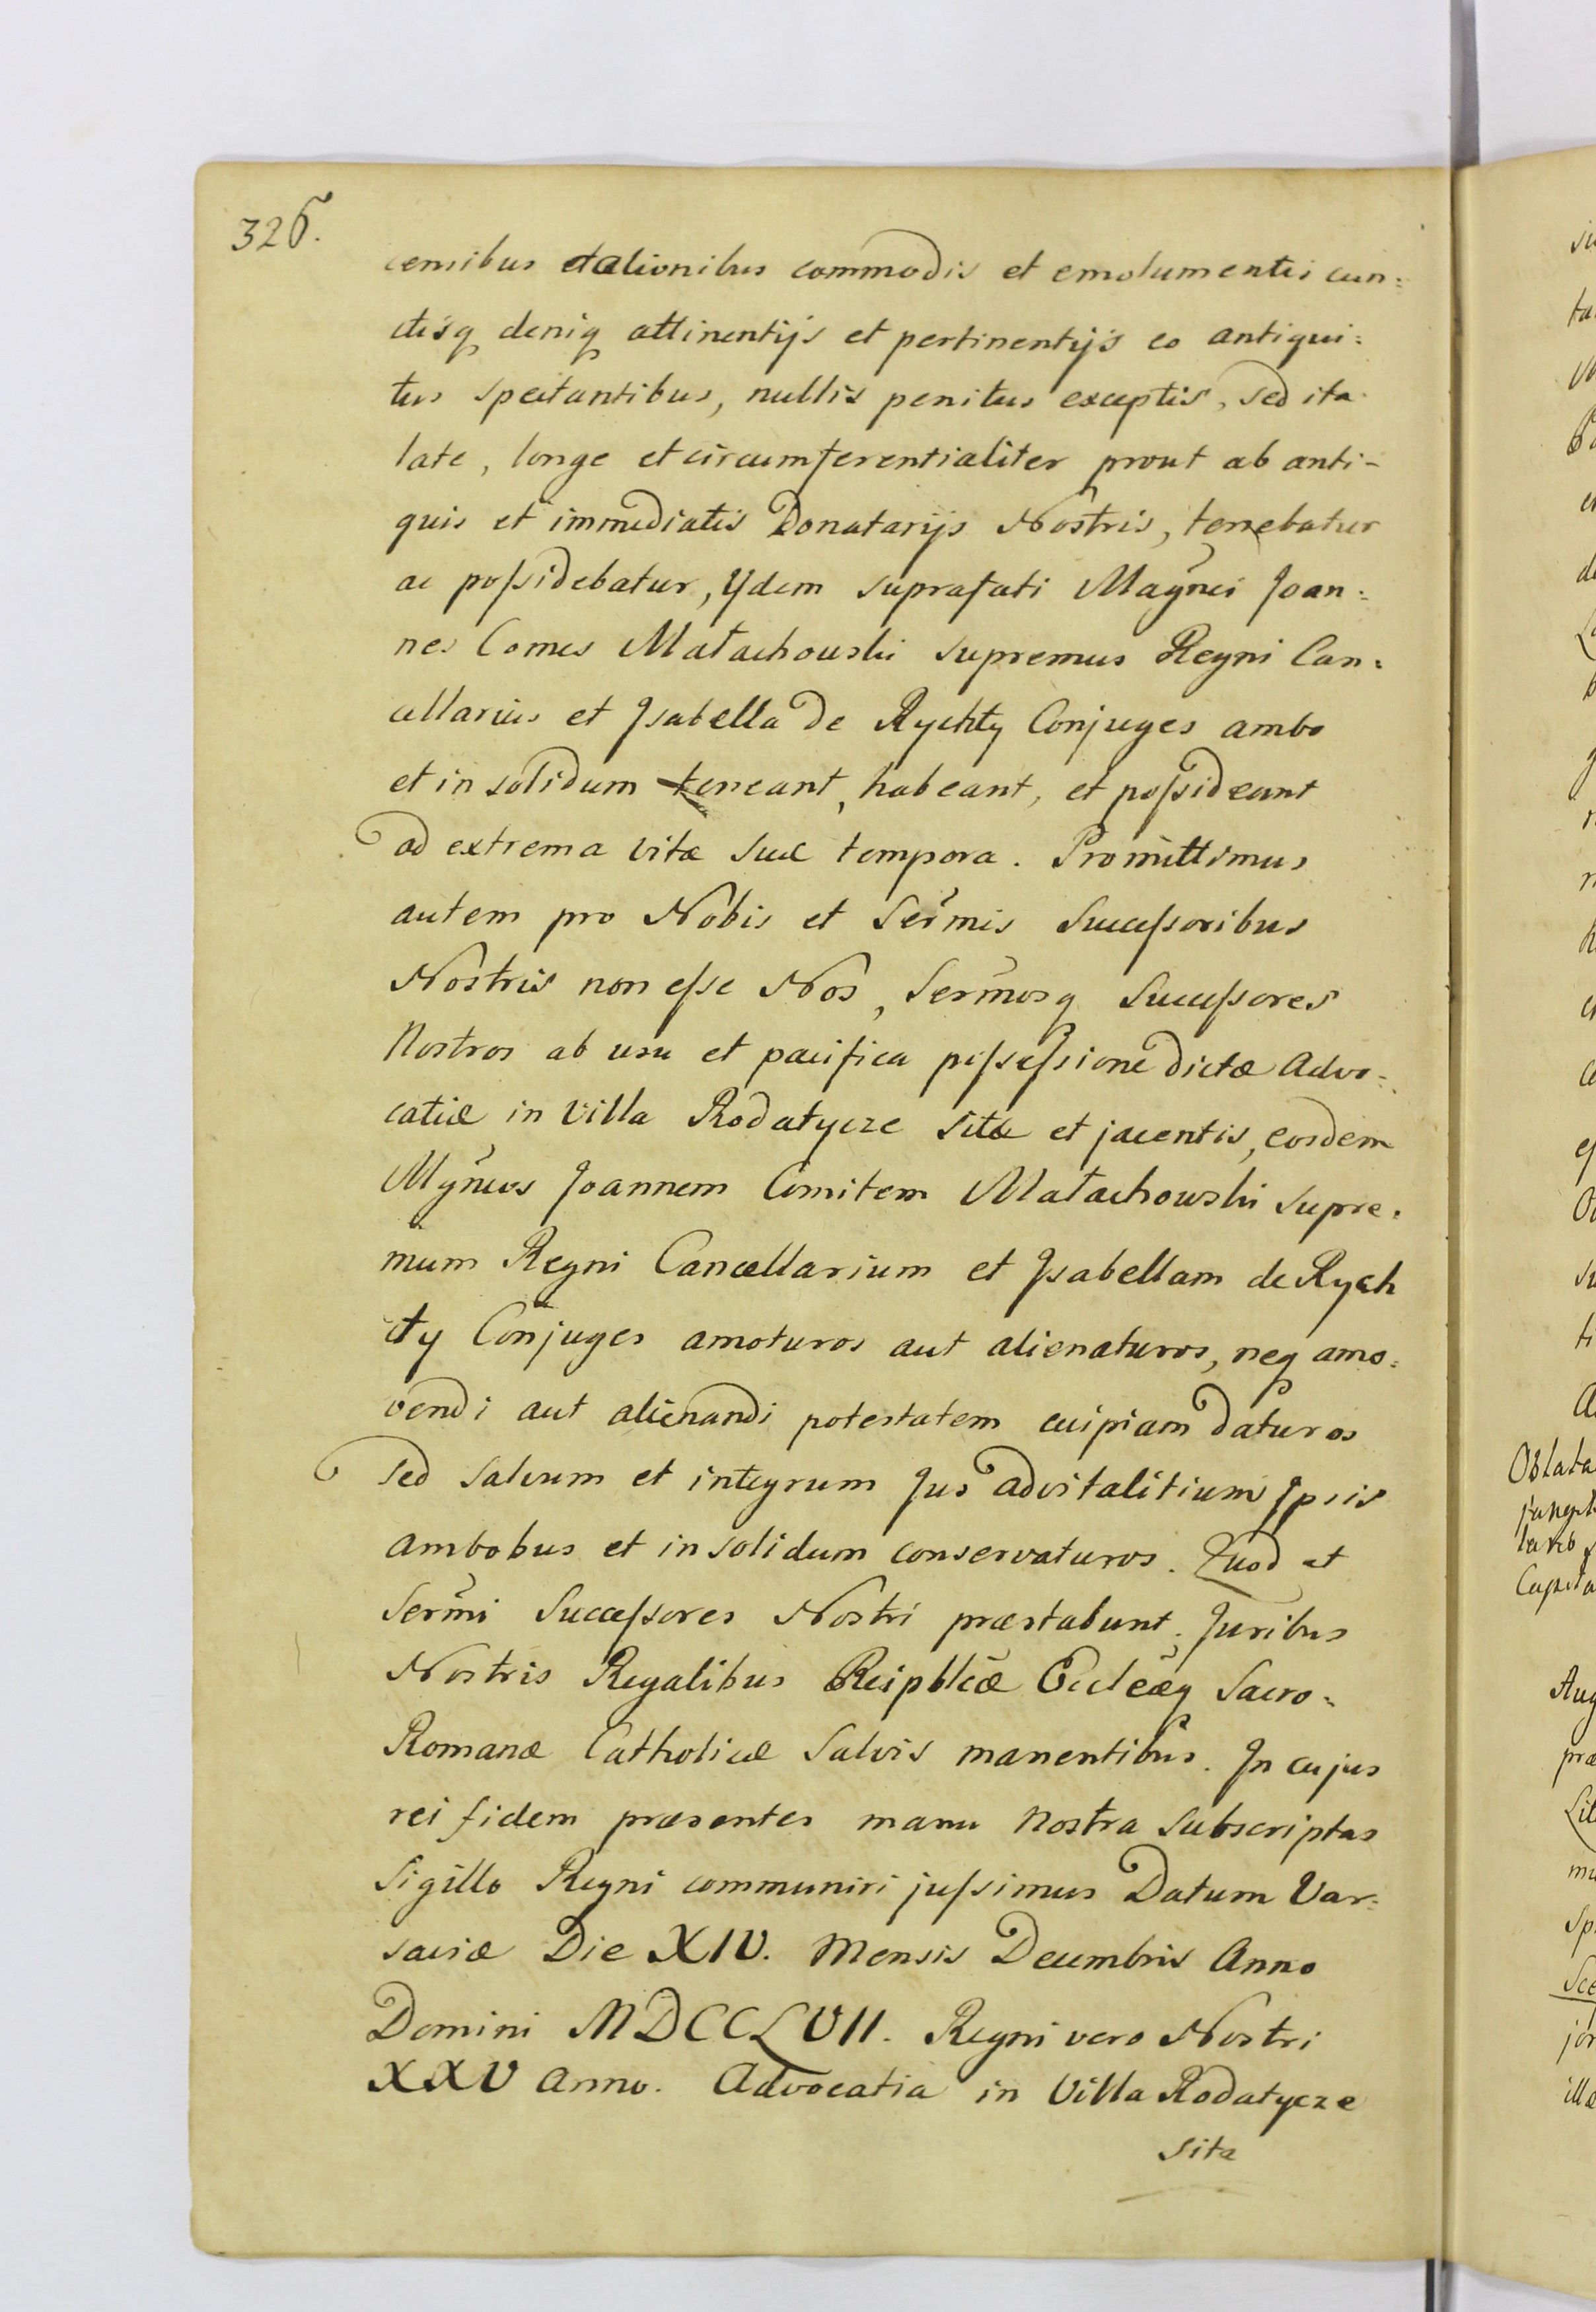 326.
censibus dationibus commodis et emolumentis cun=
ctisq deniq attinentijs et pertinentijs eo antiqui=
tus spectantibus, nullis penitus exceptis, sed ita
late, longe et circumferentialiter prout ab anti-
quis et immediatis Donatarijs Nostris, tenebatur
ac possidebatur, Ydem suprafati Magnci Joan=
nes Comes Małachowski supremus Regni Can=
cellarius et Jsabella de Rychty Conjuges ambo
et in solidum teneant, habeant, et possideant
ad extrema vitæ suæ tempora. Promittimus
autem pro Nobis et Sermis Successoribus
Nostris non esse Nos, Sermosq Successores
Nostros ab usu et pacifica possessione dictæ Advo=
catiæ in Villa Rodatycze sitæ et jacentis, eosdem
Mgncos Joannem Comitem Małachowski supre=
mum Regni Cancellarium et Jsabellam de Rych
ty Conjuges amoturos aut alienaturos, neq amo=
vendi aut alienandi potestatem cuipiam daturos
sed salvum et integrum Jus advitalitium Jpsis
ambobus et in solidum conservaturos. Quod et
Sermi Successores Nostri præstabunt. Juribus
Nostris Regalibus Reipblcæ Eccleæq Sacro=
Romanæ Catholicæ Salvis manentibus. Jn cujus
rei fidem præsentes manu Nostra subscriptas
Sigillo Regni communiri jussimus Datum Var=
saviæ Die XIV. Mensis Decembris Anno
Domini MDCCLVII. Regni vero Nostri
XXV Anno. Advocatia in Villa Rodatycze
Sita